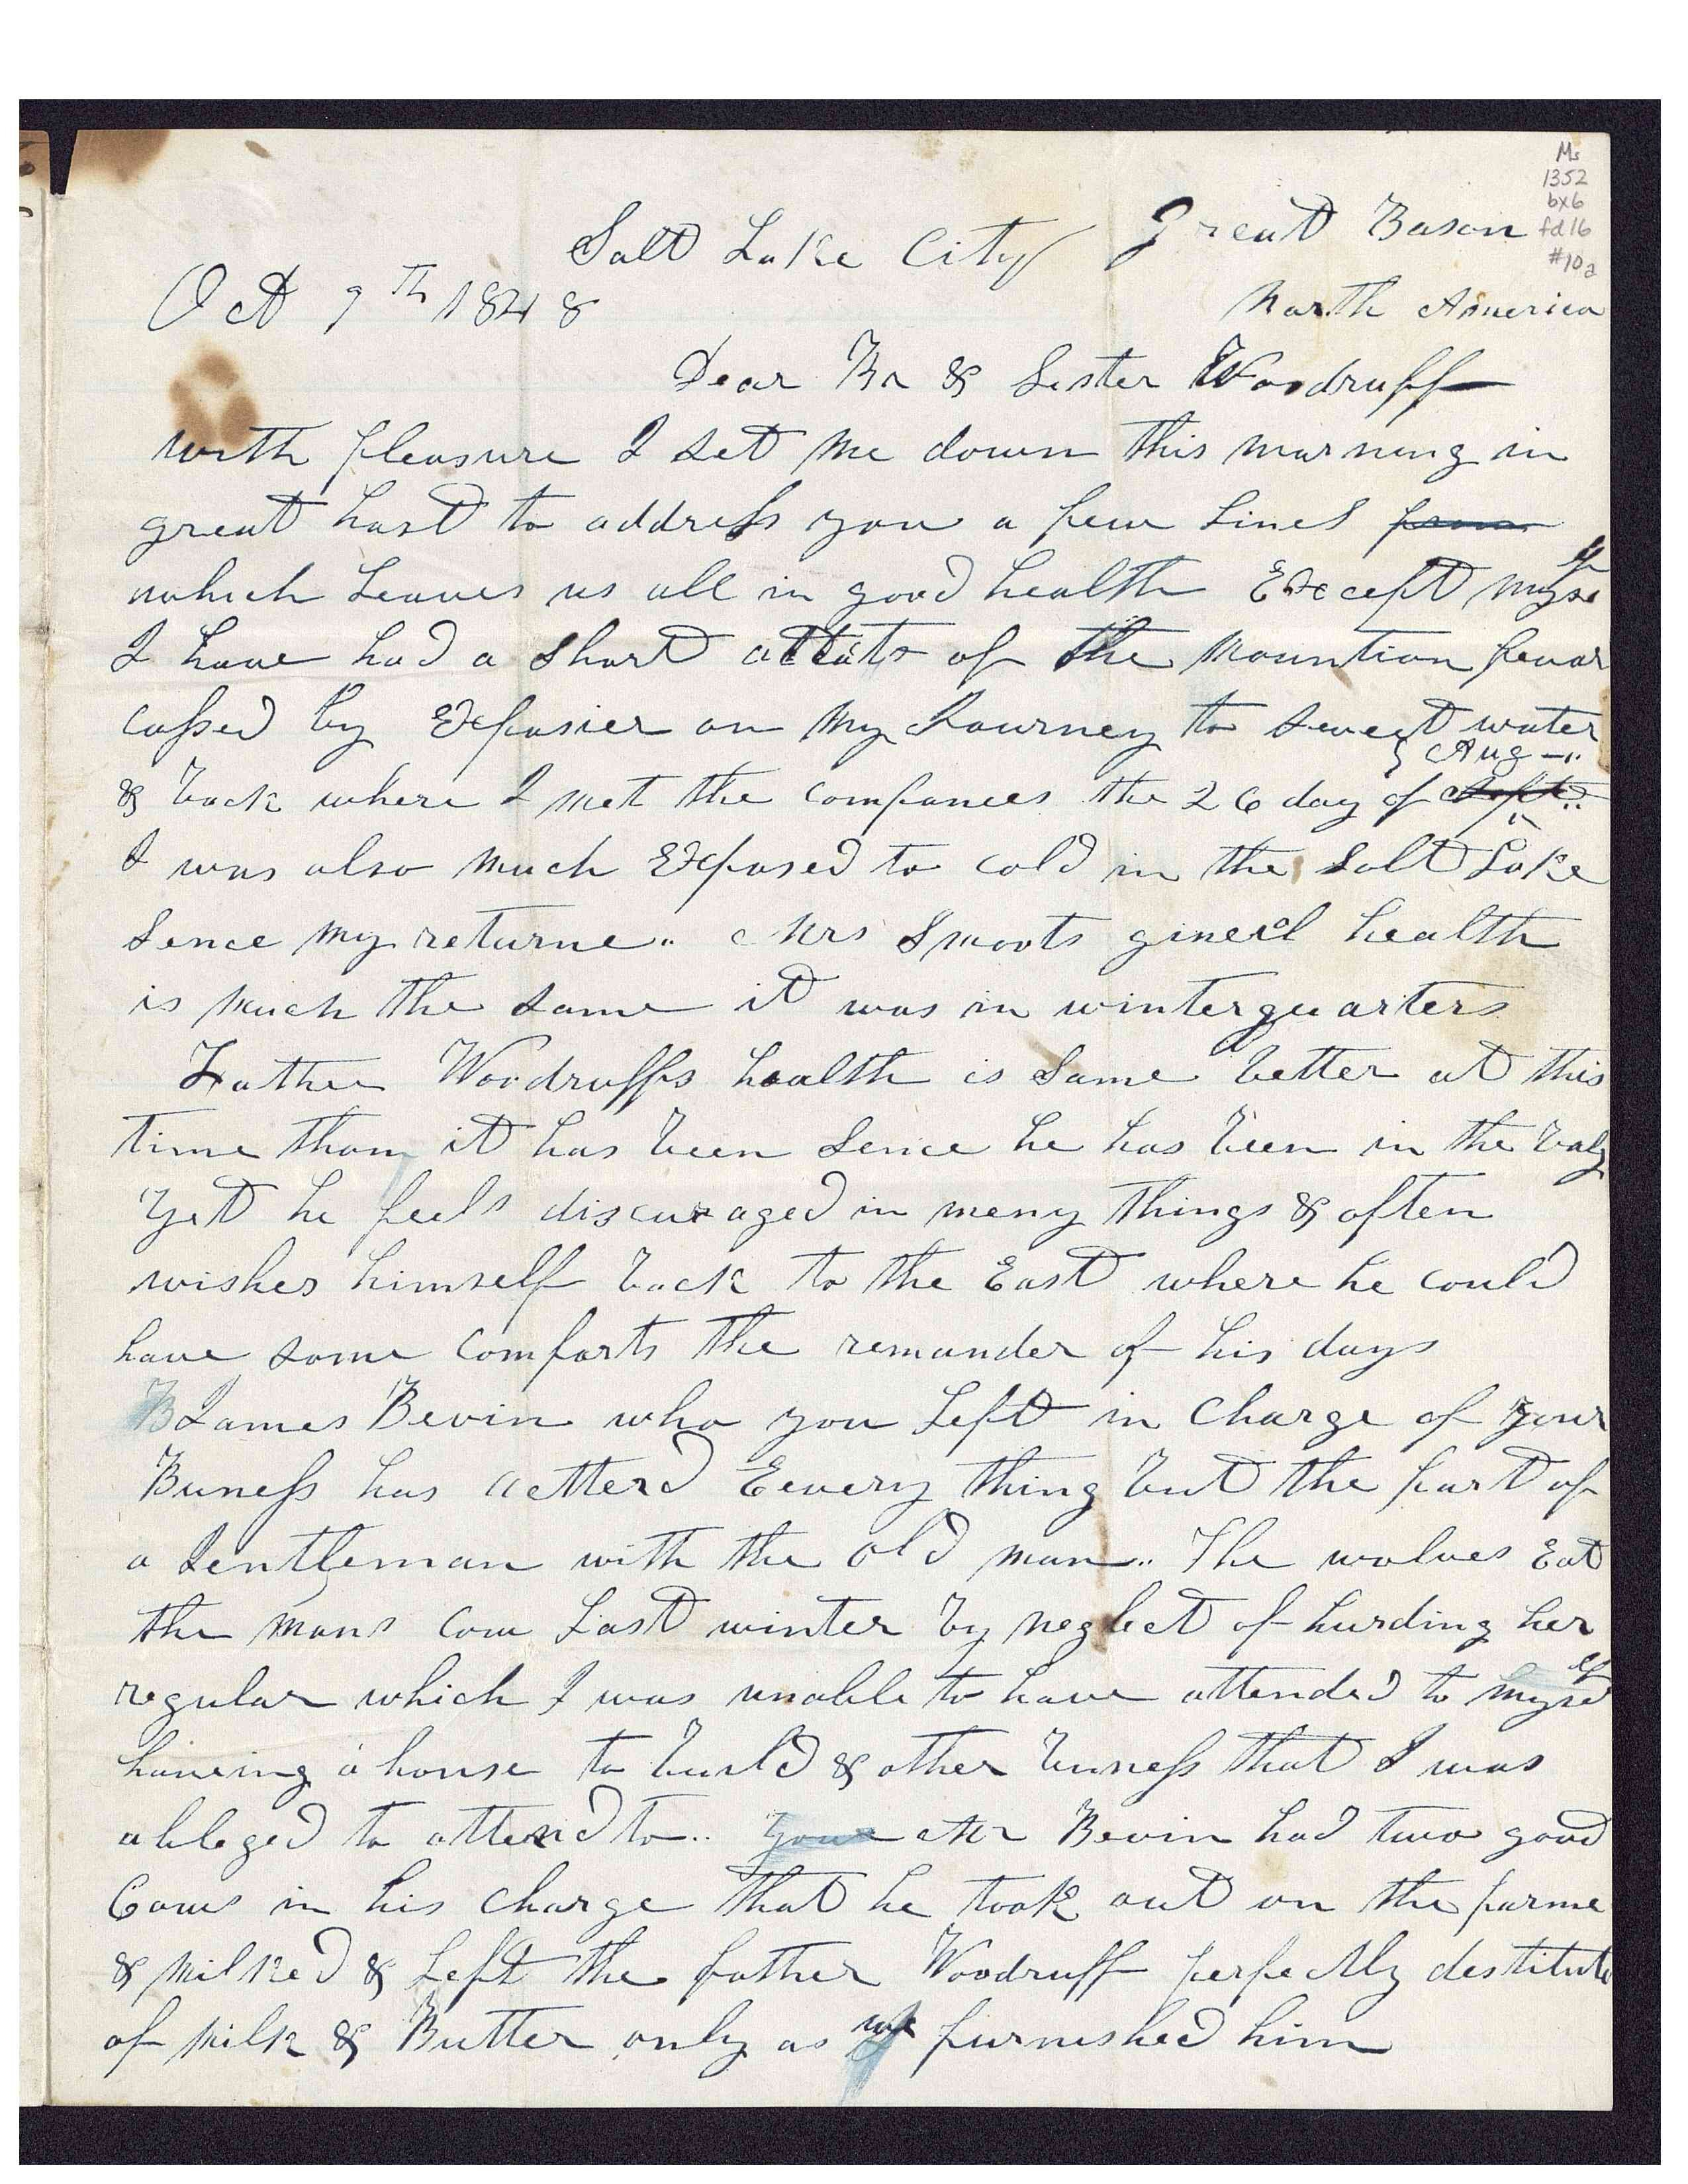 Ms
1352
bx6
fd 16
#10a
Salt Lake City Great Bason
Oct 9th 1848 North America
Dear Br & Sister Woodruff
with pleasure I set me down this morning in
great hast to address you a few Lines from
which Leaves us all in good health Except myself
I have had a Short attats of the Mountian fevar
cassed by Exposier on my Journey to Sweet water
& back where I met the companees the 26 day of Sept.. Aug-..
I was also much Exposed to cold in the Salt Lake
Sence my returne.. Mrs Smoots gineril health
is much the same it was in winterquarters
Father Woodruffs health is Some better at this
time than it has been Sence he has been in the valy
yet he feels discuraged in meny things & often
wishes himself back to the East where he could
have some comforts the remander of his days
B James Bevin who you Left in Charge of your
Buness has actterd Eevery thing but the part of
a Jentleman with the old man.. The wolves Eat
the mans cow Last winter by neglect of hurding her
regular which I was unable to have attended to myself
haveing a house to build & other buness that I was
ableged to attend to.. your Mr Bevin had two good
Cows in his charge that he took out on the farme
& milked & Left the father Woodruff perfectly destitute
of milk & Butter only as we furnished him